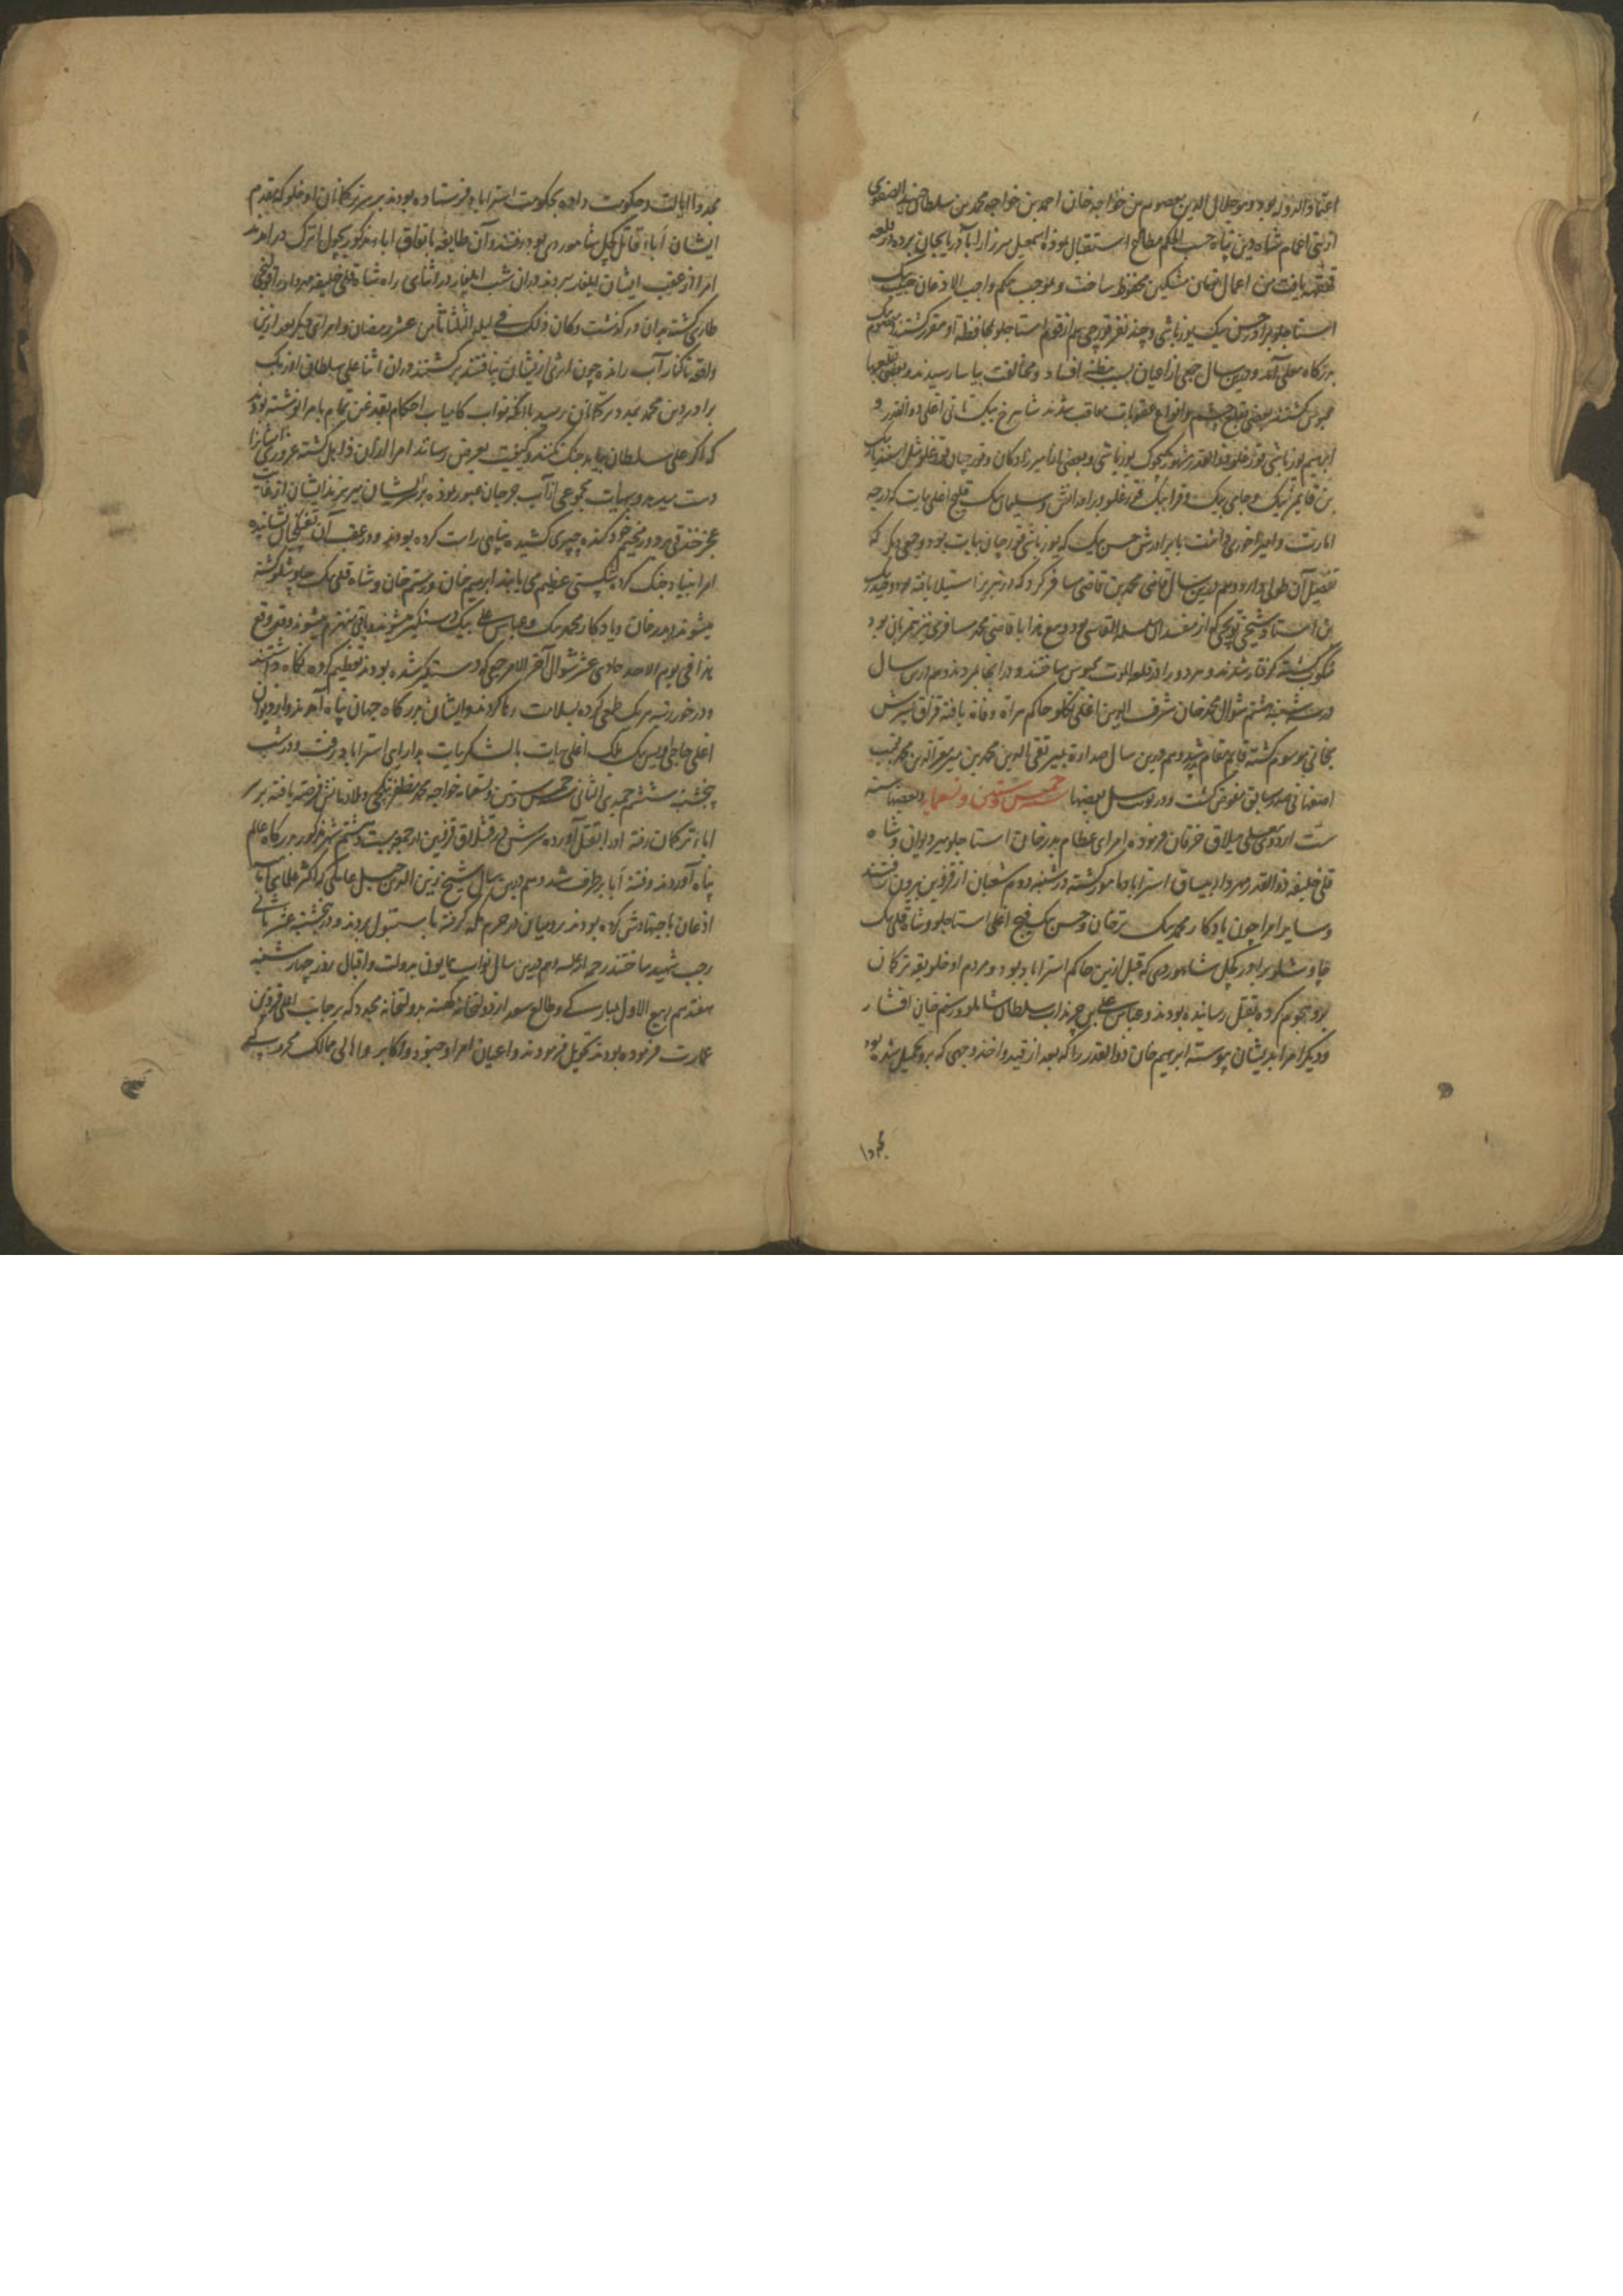 اعتماد الدوله بود و میر جلال الدین معصوم بن خواجه خان احمد بن خواجه محمد بن سلطان الصفوی
از بنی اعمام شاه دین پناه حسب الحکم مطاع استقبال نموده اسمعیل میرزا را بآذربایجان برده در قلعه
قهقهه بافت من اعمال مشکین محفوظ ساخت و بموجب حکم واجب الاذعان حبیب بیک
استاجلو برادر حسن بیک یوزباشی و چند نفر قورچی هم از قوم استاجلو بمحافظه او مقرر گشتند
بدرگاه معلی آمد و درین سال جمعی از اعیان بسبب مظنه افساد و مخالفت بیاسا رسیدند و بعضی
محبوس گشتند بعضی بقلع چشم و انواع عقوبات معاقب شدند شاهرخ بیک تاتی اغلی ذوالقدر و
ابراهیم یوزباشی قورغلو ذوالقدر مشهور بکچوک یوزباشی و بعضی از امیرزادگان و قورچیان قورغلو مثل اسفندیار بیک
بن و حاجی بیک و قرا بیک قورغلو و برادرانش و سلیمان بیک قلیج اغلی بیات که درجه
امارت و امیراخوری داشت با برادرش حسن بیک که یوزباشی قورچیان بیات بود و جمعی دیگر که
تفصیل آن طولی دارد و هم درین سال قاضی محمد بن قاضی مسافر کرد که در تبریز استیلا یافته بود و حیدر بیک
بن استاد شیخی توپچی که از مفسدان بود و مع هذا با قاضی محمد مسافری نیز همزبان بود
گشته گرفتار شدند و هر دو را در قلعه الموت محبوس ساختند و در آنجا مردند و هم درین سال
در شنبه هشتم شوال محمد خان شرف الدین اغلی تکلو حاکم هراة وفات یافته قزاق پسرش
بخانی موسوم گشته قایم مقام پدر شد و هم درین سال صدارة بمیر تقی الدین محمد بن میر معز الدین محمد نقیب
اصفهانی صدر سابق مفوض گشت و در یونت ئیل بعضها خمس و ستین و تسعمایه و بعضها سنه
ست اردوی معلی ییلاق خرقان فرموده امرای عظام بدر خان استاجلو میر دیوان و شاه
قلی خلیفه ذوالقدر مهردار بیساق استراباد مامور گشته در شنبه دوم شعبان از قزوین بیرون رفتند
و سایر امرا چون یادکار محمد بیک ترخان و حسن بیک فتح اغلی استاجلو و شاه قلی بیک
چاوشلو برادر کپل شاهوردی که قبل ازین حاکم استراباد بود و مردم اوخلو یقه ترکمان
برو هجوم کرده بقتل رسانیده بودند و عباس علی بن چرنداب سلطان شاملو و رستم خان افشار
و دیگر امرا بدیشان پیوسته ابرهیم خان ذوالقدر را که بعد از قید و اخذ وجهی که برو تحمیل شده بود
مجددا
مجددا ایالت و حکومت داده بحکومت استراباد فرستاده بودند بر سر ترکمانان اوخلو که مقدم
ایشان آبا، قاتل کپل شاهوردی بود رفتند و آن طایفه باتفاق اباء مذکور بچول اترک در آمدند
امرا از عقب ایشان ایلغار برده در آن شب ایلغار در اثنای راه شاه قلی خلیفه مهردار را قولنجی
طاری گشته بدان درگذشت و کان ذلک فی لیلة الثلثا ثامن عشر رمضان و امرای دیگر بعد ازین
واقعه تا کنار آب رانده چون اثری ازیشان نیافتند برگشتند در آن اثنا علی سلطان اوزبک
برادر دین محمد بمدد ترکمانان رسید با آنکه نواب کامیاب احکام بقدغن تمام بامرا نوشته بود
که اگر علی سلطان بیاید جنک نکنند و کیفیت بعرض رسانند امرا از آن ذاهل گشته غرور ایشانرا
دست میدهد و بهیات مجموعی از آب جرجان عبور نموده بر سر ایشان میریزند ایشان از غایت
عجز خندقی بر دور مخیم خود کنده چپری کشیده پناهی راست کرده بودند و در عقب آن تفنکچیان نشانیده
امرا بنیاد جنک کرده شکستی عظیم می یابند ابرهیم خان و رستم خان و شاه قلی بیک چاوشلو کشته
میشوند و بدر خان و یادکار محمد بیک و عباس علی بیک دستگیر میشوند و باقی منهزم میشوند و قد وقع
هذا فی یوم الاحد حادی عشر شوال آخر الامر جمعی که دستگیر شده بودند تعظیم کرده نگاه داشتند
و در خور رتبه هر یک طمعی کرده بسلامت رها کردند و ایشان بدرگاه جهان پناه آمدند و ابو دردا
اغلی حاجی ویس بیک اغلی بیات بالشکر بیات بدارایی استراباد رفت و در شب
پنجشنبه ششم جمیدی الثانی خمس و ستین و تسعمایه خواجه محمد مظفر تبکچی و ملازمانش فرصت یافته بر سر
ابا، ترکمان رفته او را بقتل آورده سرش در قشلاق قزوین در جمعه بیست و هشتم شهر مذکور بدرگاه عالم
پناه آوردند و فتنه آبا برطرف شد و هم درین سال شیخ زین الدین جبل عاملی که اکثر علمای
اذعان باجتهادش کرده بودند رومیان در حرم مکه گرفته باستنبول بردند و در پنجشنبه عشر ثانی
رجب شهید ساختند رحمه الله و هم درین سال نواب همایون بدولت و اقبال روز چهارشنبه
هفتدهم ربیع الاول بمبارکی و طالع سعد از دولتخانه کهنه بدولتخانه مجدد که بر جانب اعلی قزوین
عمارت فرموده بودند تحویل فرمودند و اعیان امرا و جنود و اکابر و اهالی ممالک محروسه که